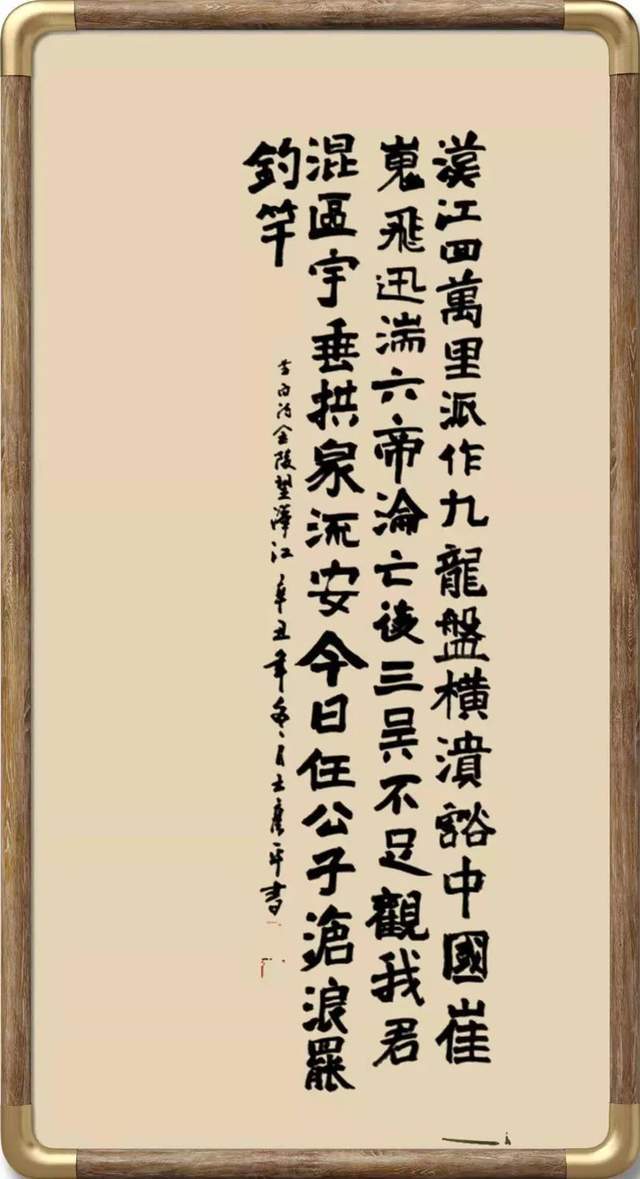 漢江四萬里派作九龍盤橫潰豁中國崔
嵬飛迅湍六帝淪亡後三吳不足觀我君
混區宇垂拱泉流安今日任公子滄浪罷
釣竿
李白诗金陵望漢江辛丑年冬月書